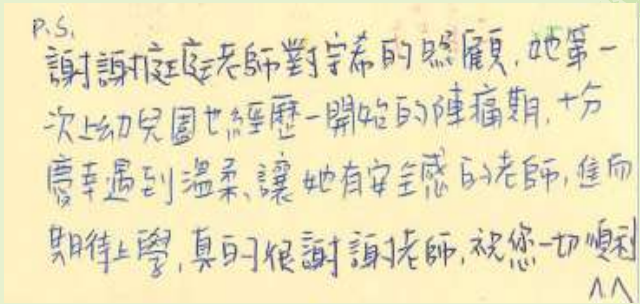 P.S.
謝謝庭庭老師對宇希的照顧,她第一
次上幼兒園也經歷一開始的陣痛期,十分
慶幸遇到溫柔、讓她有安全感的老師,進而
期待上學,真的很謝謝老師,祝您一切順利
^^